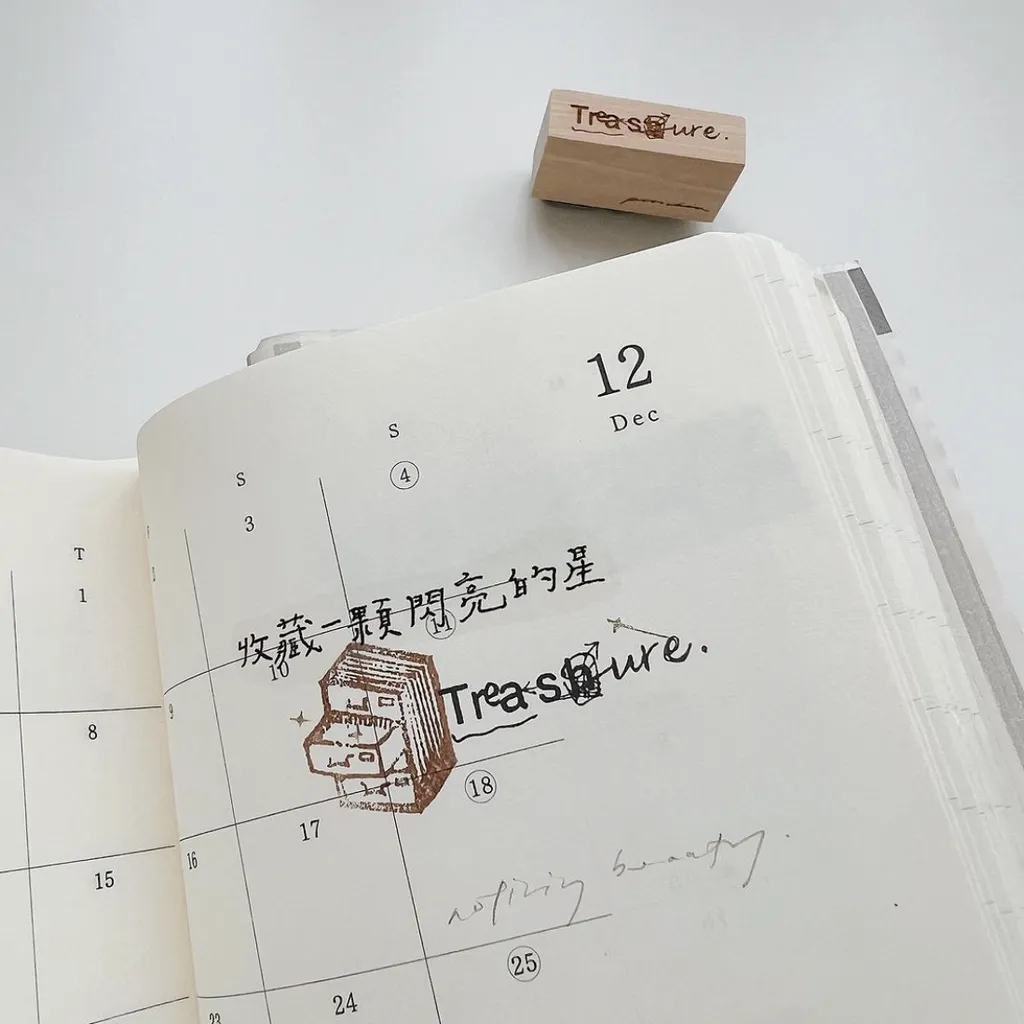 Treasure.
12
Dec
S
S
T
3
4
1
收藏一顆閃亮的星
10
11
Treasure.
9
8
18
17
16
15
notining beauty.
25
24
23